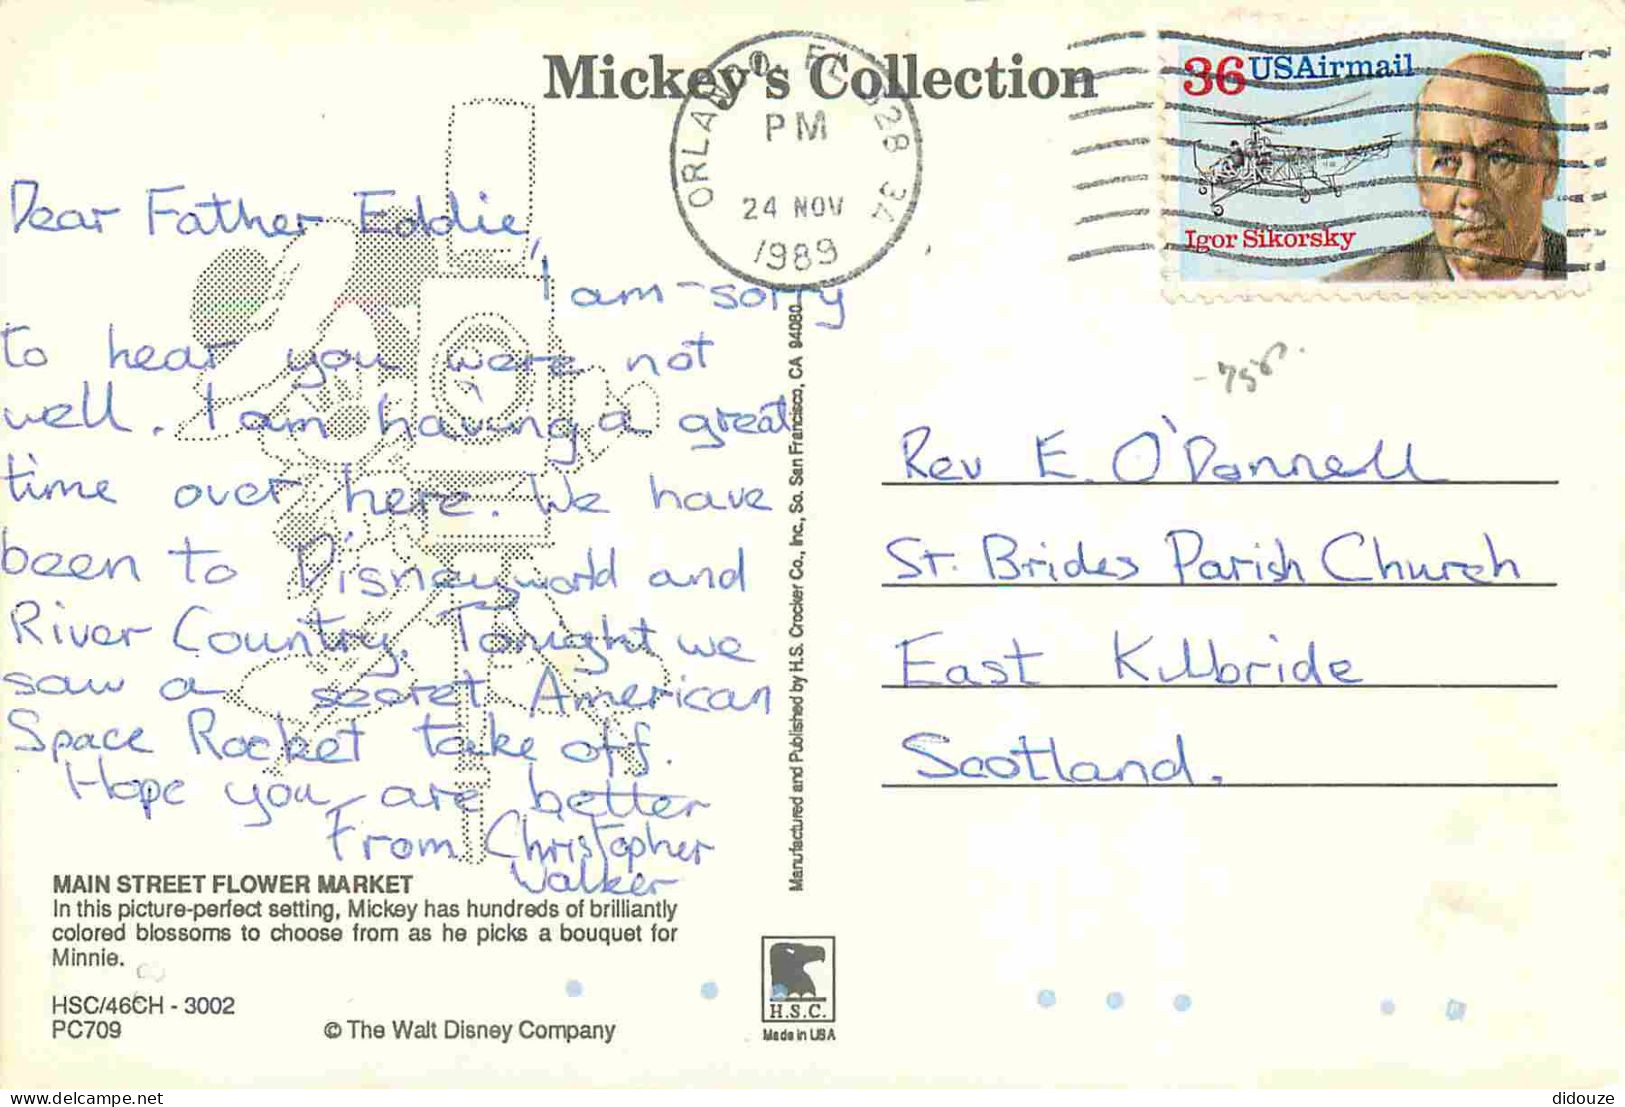 Mickey's Collection
ORLANDO, FL 328 34
PM
24 NOV
1989
36 USAirmail
Igor Sikorsky
Dear Father Eddie,
I am sorry
to hear you were not
well. I am having a great
time over here. We have
been to Disneyworld and
River Country. Tonight we
saw a secret American
Space Rocket take off.
Hope you are better
From Christopher
Walker
Manufactured and Published by H.S. Crocker Co., Inc., So. San Francisco, CA 94080
Rev E. O'Donnell
St. Brides Parish Church
East Kilbride
Scotland.
MAIN STREET FLOWER MARKET
In this picture-perfect setting, Mickey has hundreds of brilliantly
colored blossoms to choose from as he picks a bouquet for
Minnie.
HSC/46CH - 3002
PC709
© The Walt Disney Company
H.S.C.
Made in USA
delcampe.net
didouze